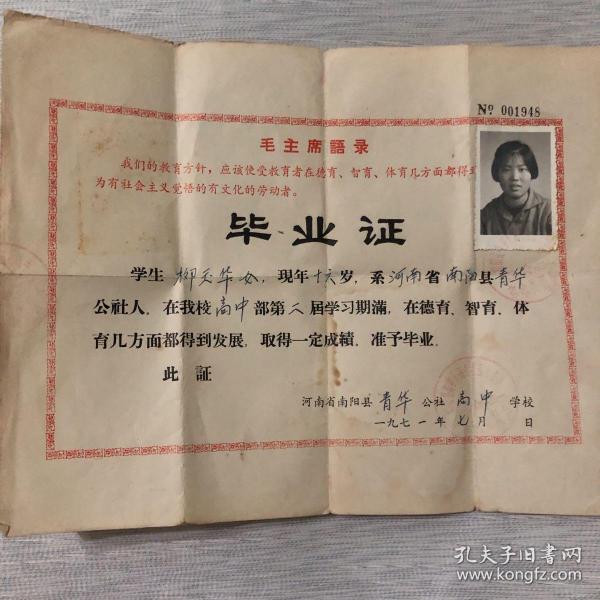 Nº 001948
毛主席語录
我们的教育方针，应该使受教育者在德育、智育、体育几方面都得到
为有社会主义觉悟的有文化的劳动者。
毕业证
学生 柳玉华 女，现年十六岁，系河南省南阳县青华
公社人．在我校高中部第二届学习期满，在德育、智育、体
育几方面都得到发展．取得一定成绩．准予毕业．
此证
河南省南阳县青华公社高中学校
一九七一年七月 日
孔夫子旧书网
www.kongfz.com